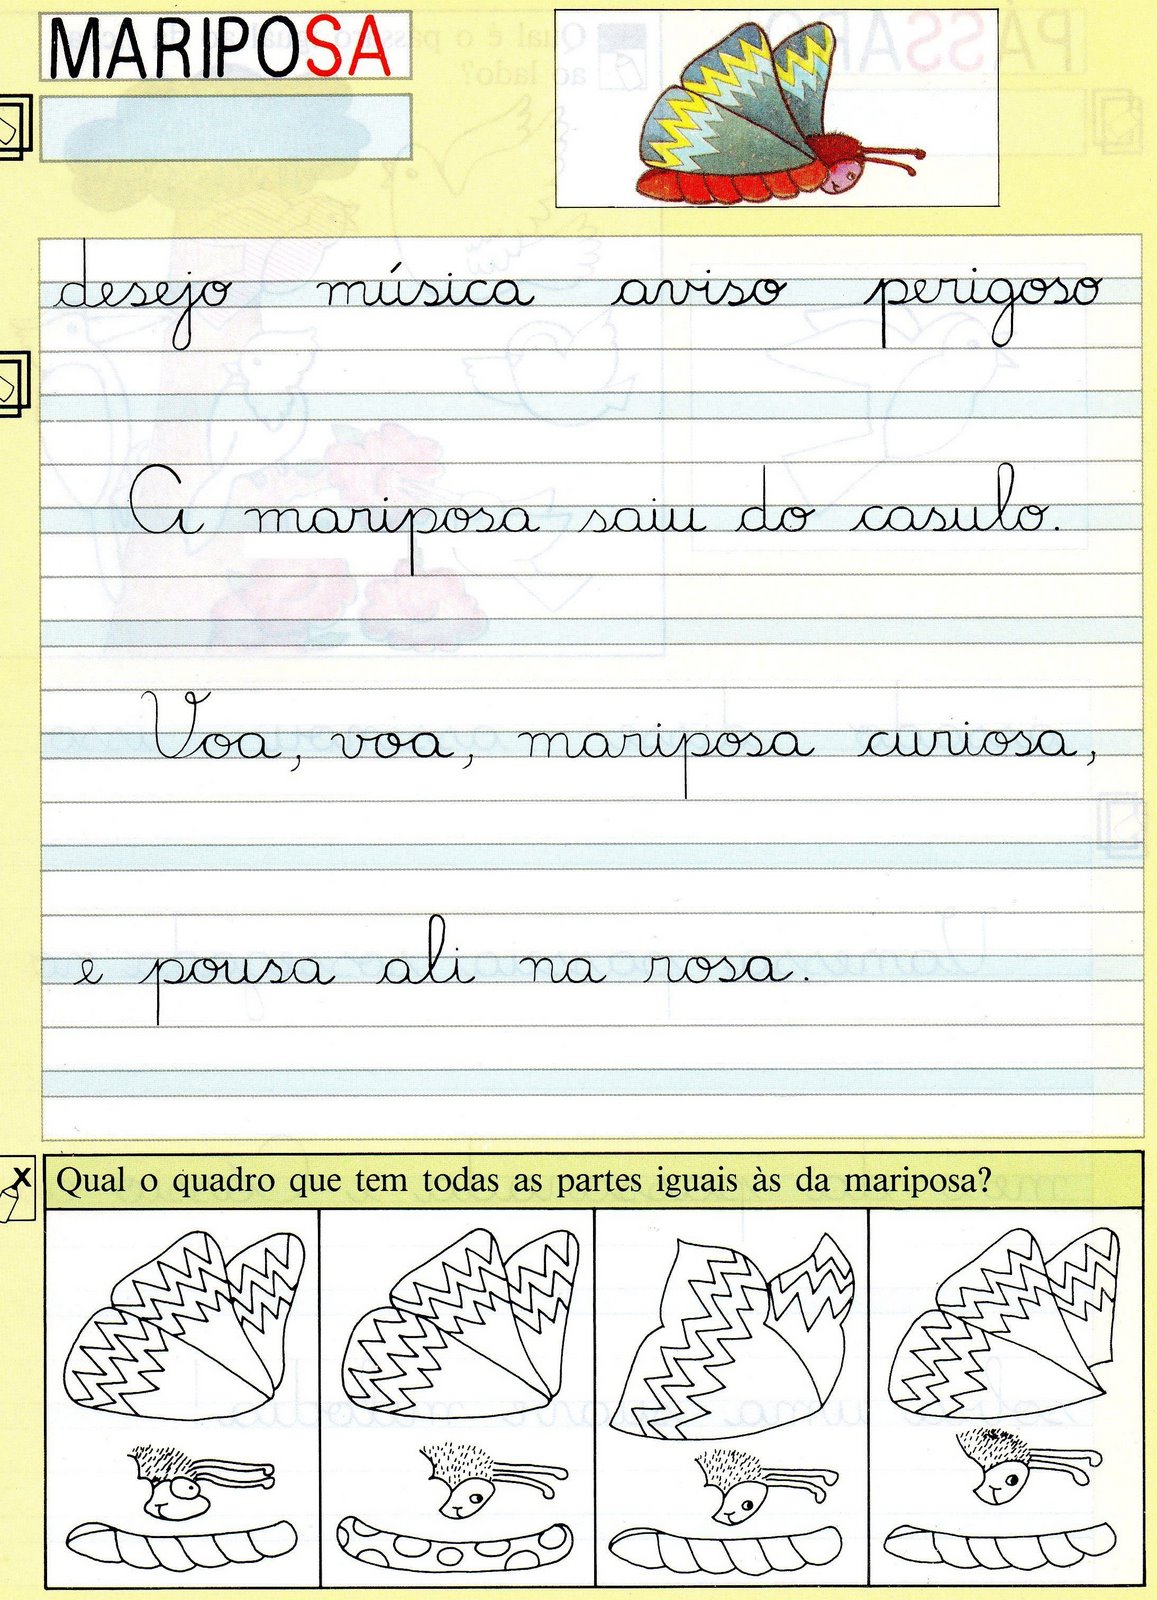 MARIPOSA
desejo música aviso perigoso
A mariposa saiu do casulo.
Voa, voa, mariposa curiosa,
e pousa ali na rosa.
Qual o quadro que tem todas as partes iguais às da mariposa?